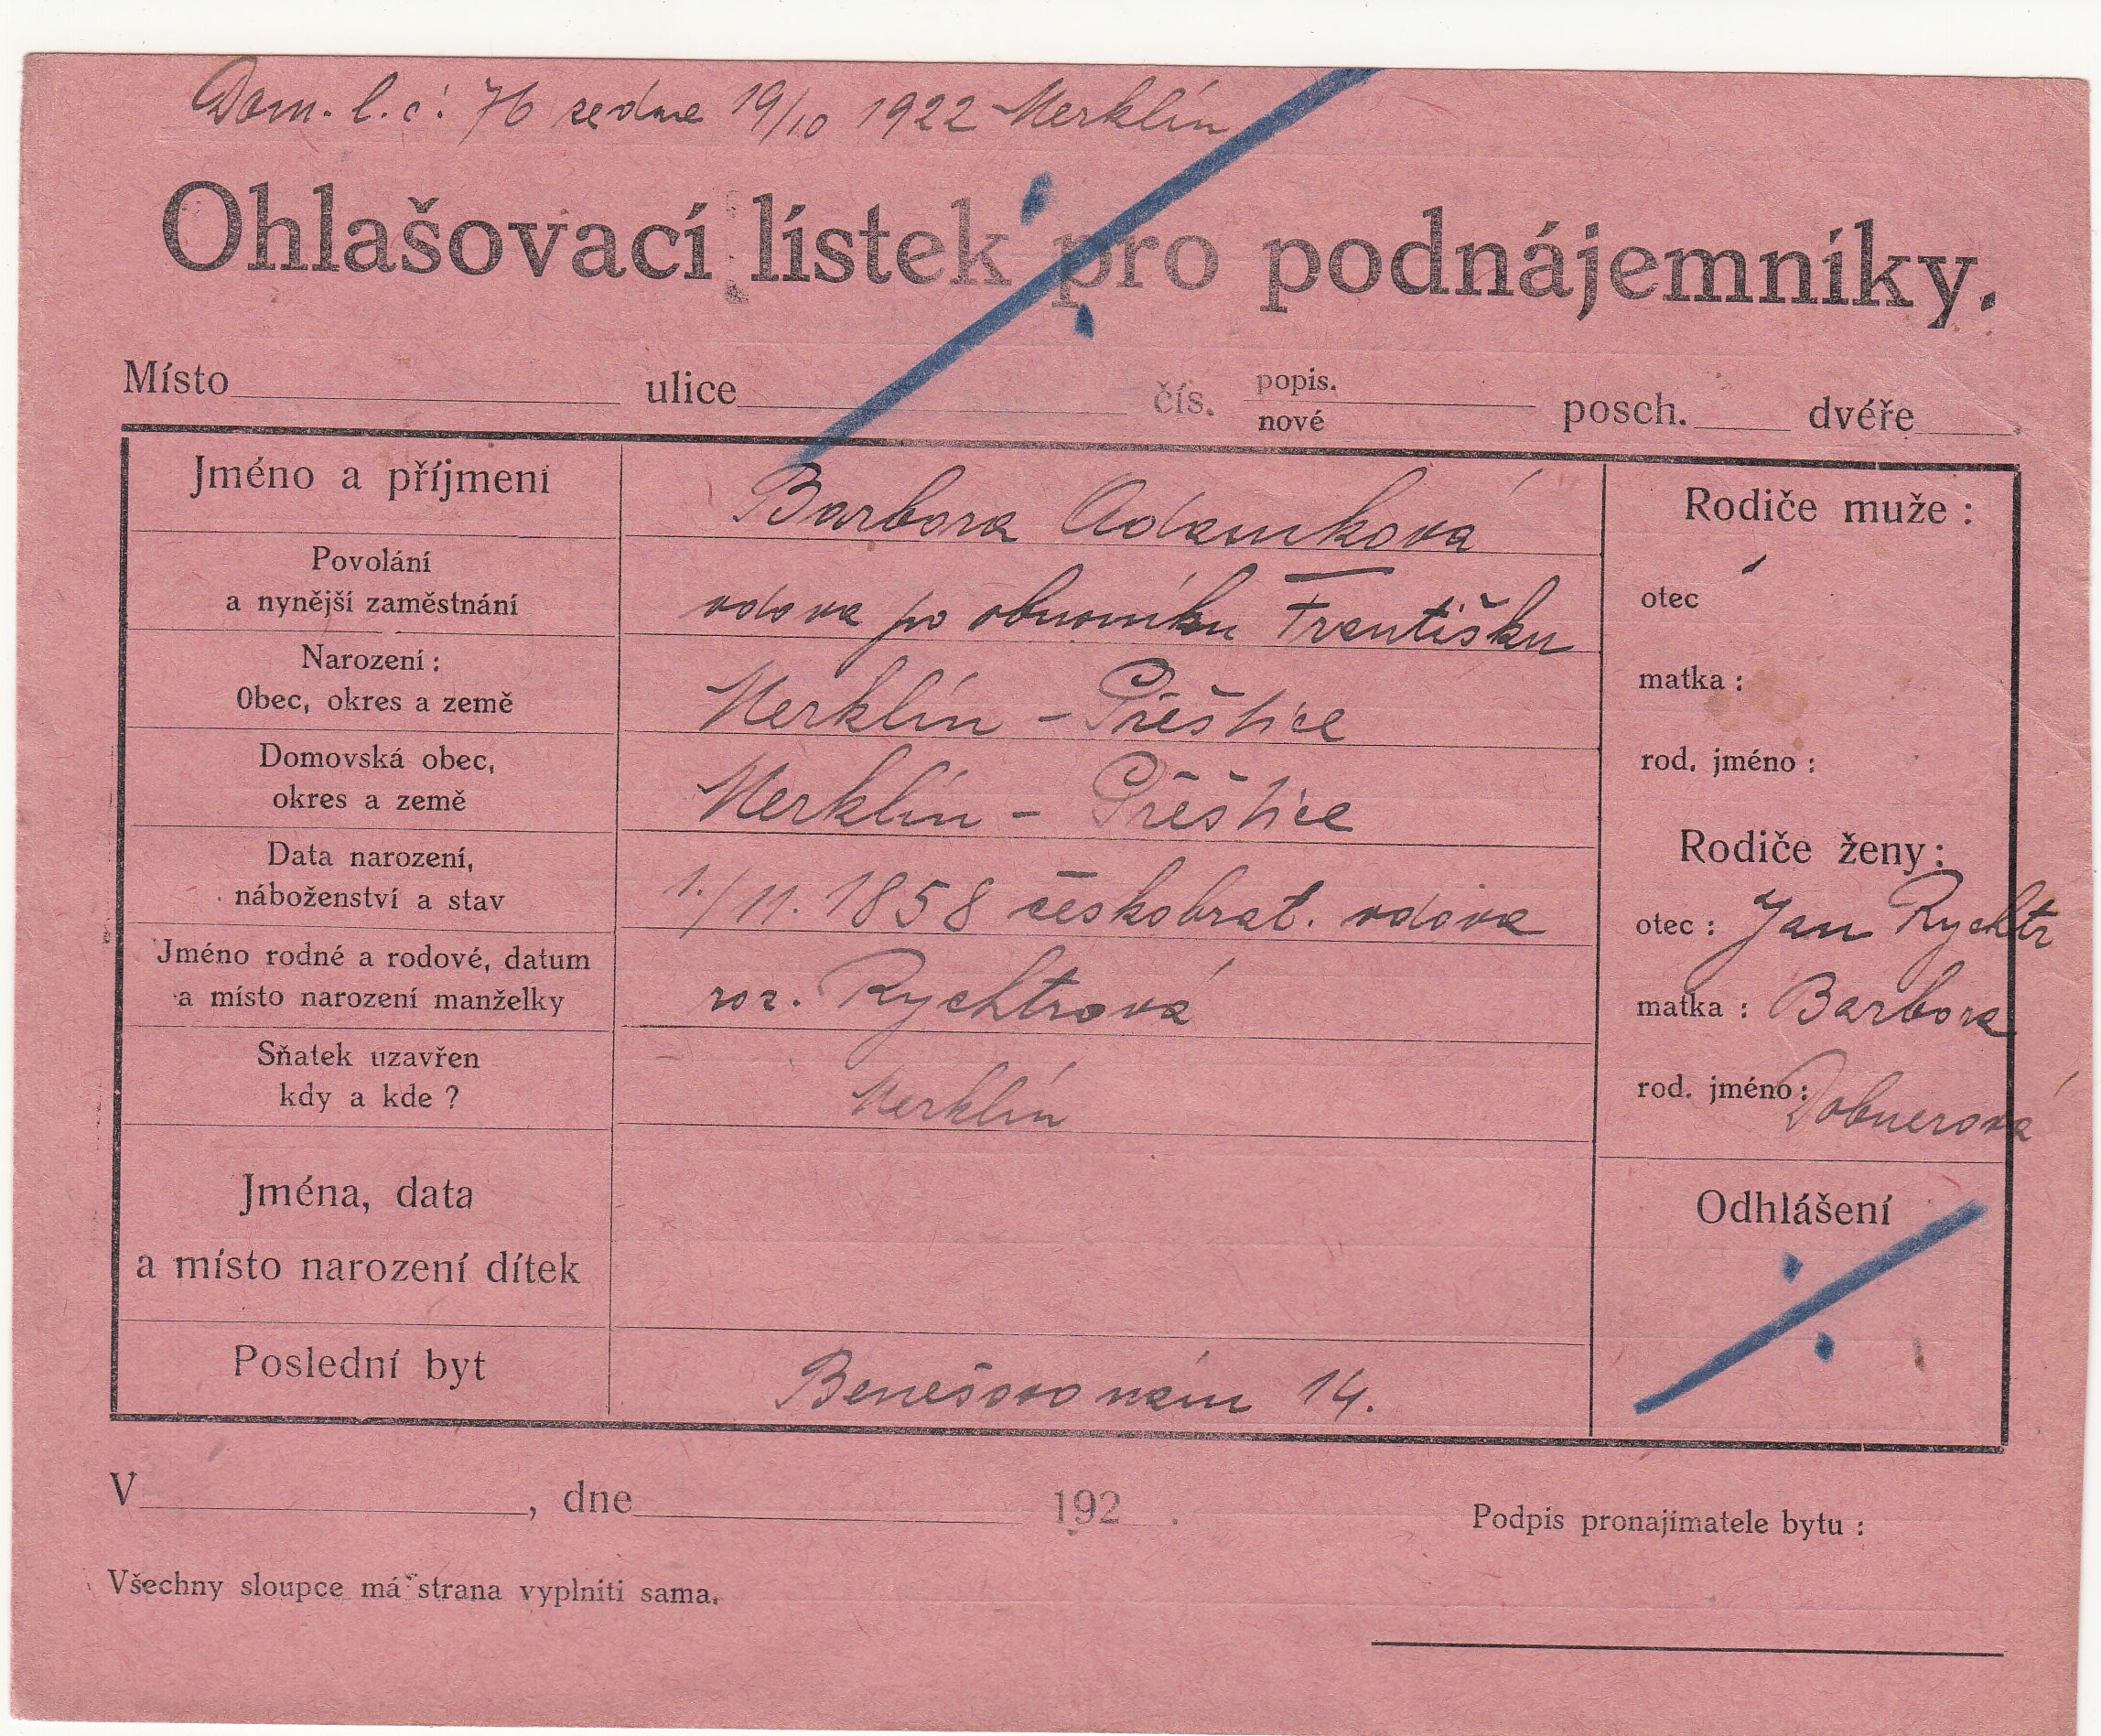 Dom. l. č: 76 ze dne 19/10 1922 Merklín
Ohlašovací lístek pro podnájemníky.
Místo ulice čís. popis. nové posch. dvéře
Jméno a příjmení Barbora Adamková
Povolání
a nynější zaměstnání vdova po obuvníku Františku
Narození:
Obec, okres a země Merklín - Přeštice
Domovská obec,
okres a země Merklín - Přeštice
Data narození,
náboženství a stav 1./11. 1858 českobrat. vdova
Jméno rodné a rodové, datum
a místo narození manželky roz. Rychtrová
Sňatek uzavřen
kdy a kde? Merklín
Jména, data
a místo narození dítek
Poslední byt Benešovo nám 14.
Rodiče muže:
otec
matka:
rod. jméno:
Rodiče ženy:
otec: Jan Rychtr
matka: Barbora
rod. jméno: Dobnerová
Odhlášení
V , dne 192 .
Podpis pronajímatele bytu:
Všechny sloupce má strana vyplniti sama.